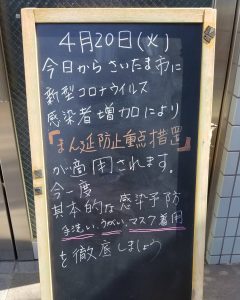 4月20日(火)
今日からさいたま市に
新型コロナウイルス
感染者増加により
『まん延防止重点措置』
が適用されます。
今一度
基本的な感染予防
手洗い、うがい、マスク着用
を徹底しましょう